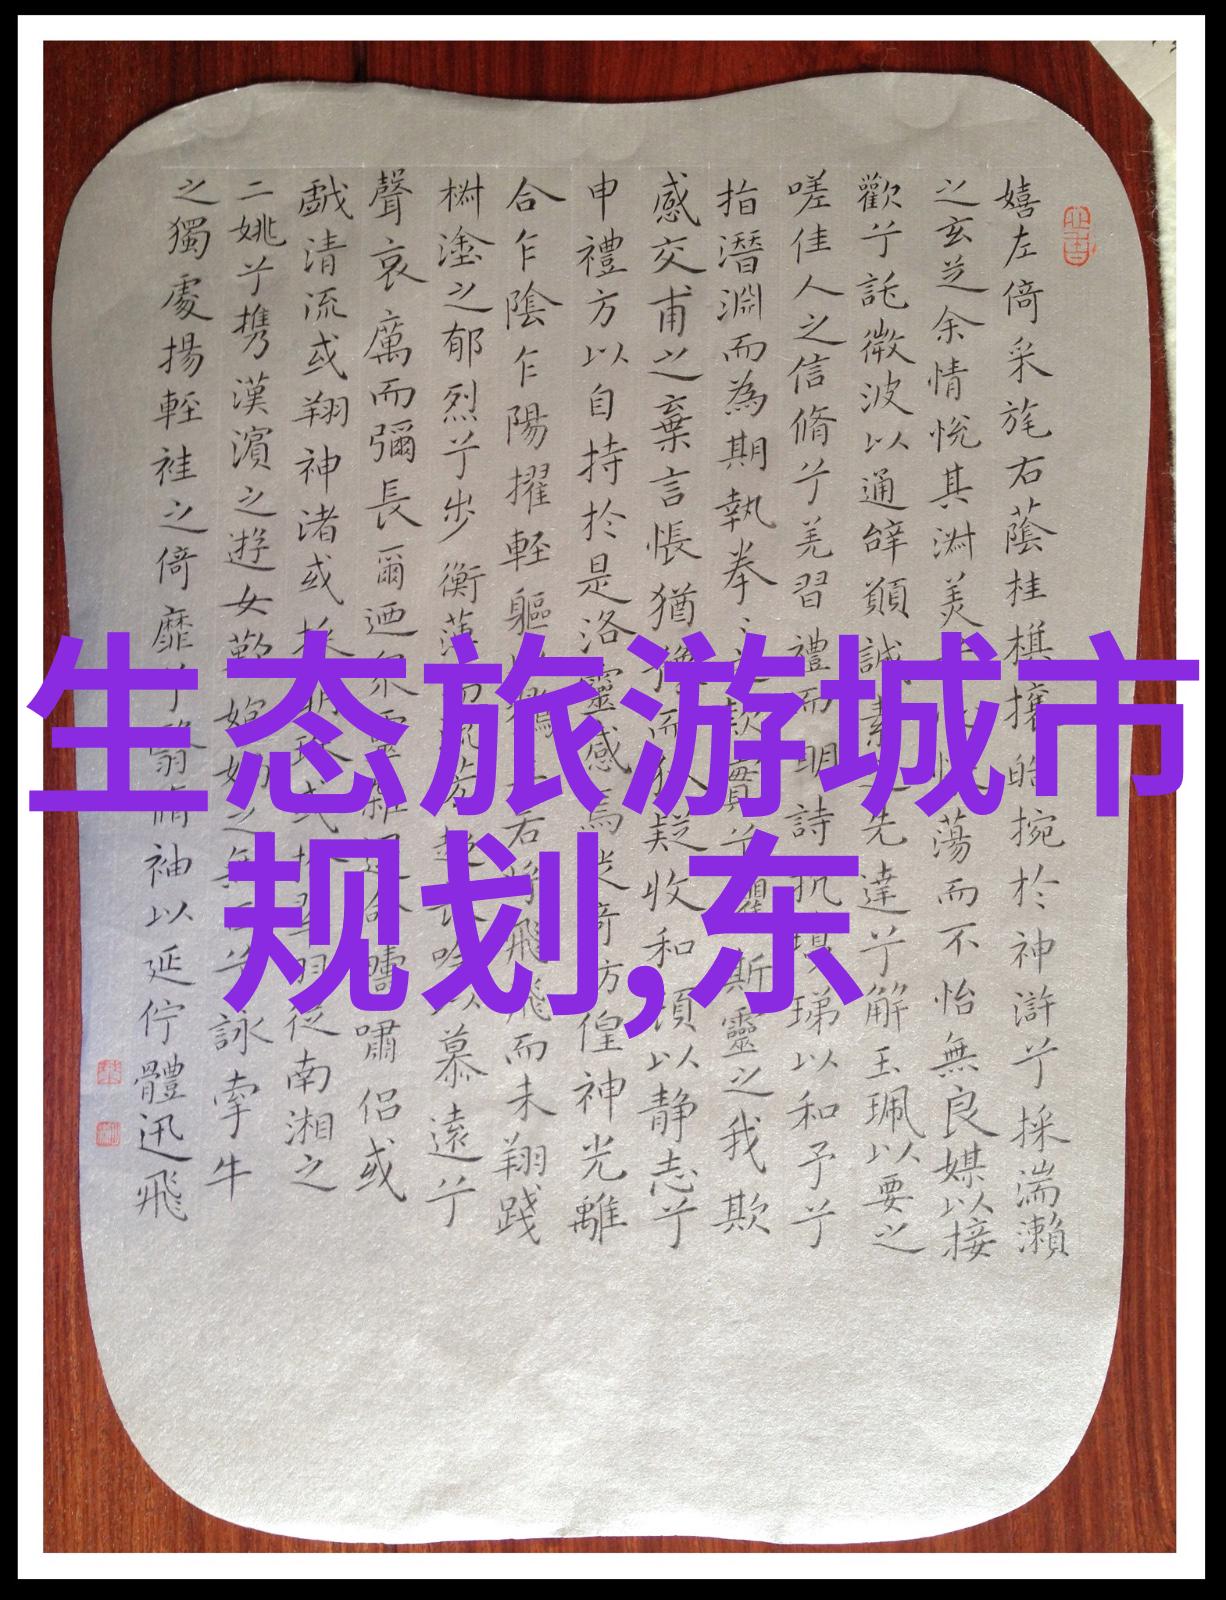 嬉左倚采旄右蔭桂棋攘皓捥於神滸兮採湍瀨
之玄芝余情悅其淑美蕩而不怡無良媒以接
歡兮託微波以通辝願誠素先達兮解玉珮以要之
嗟佳人之信脩兮羌習禮而明詩抗瓊珶以和予兮
指潛淵而為期執拳款實兮懼斯靈之我欺
感交甫之棄言悵猶豫而疑收和頂以靜志兮
申禮方以自持於是洛靈感焉徙倚方偟神光離
合乍陰乍陽擢輕軀若將飛飛而未翔踐
樹塗之郁烈兮步衡薄而流芳超長吟以慕遠兮
聲哀厲而彌長爾迺眾靈雜遝命疇嘯侶或
戲清流或翔神渚或採明珠或翠羽從南湘之
二姚兮攜漢濱之遊女歎之無兮詠牽牛
之獨處揚輕袿之倚靡兮翳脩袖以延佇體迅飛
生态旅游城市
规划,东